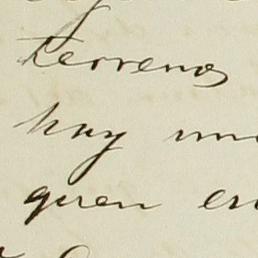 terrenos
hay un
quren en